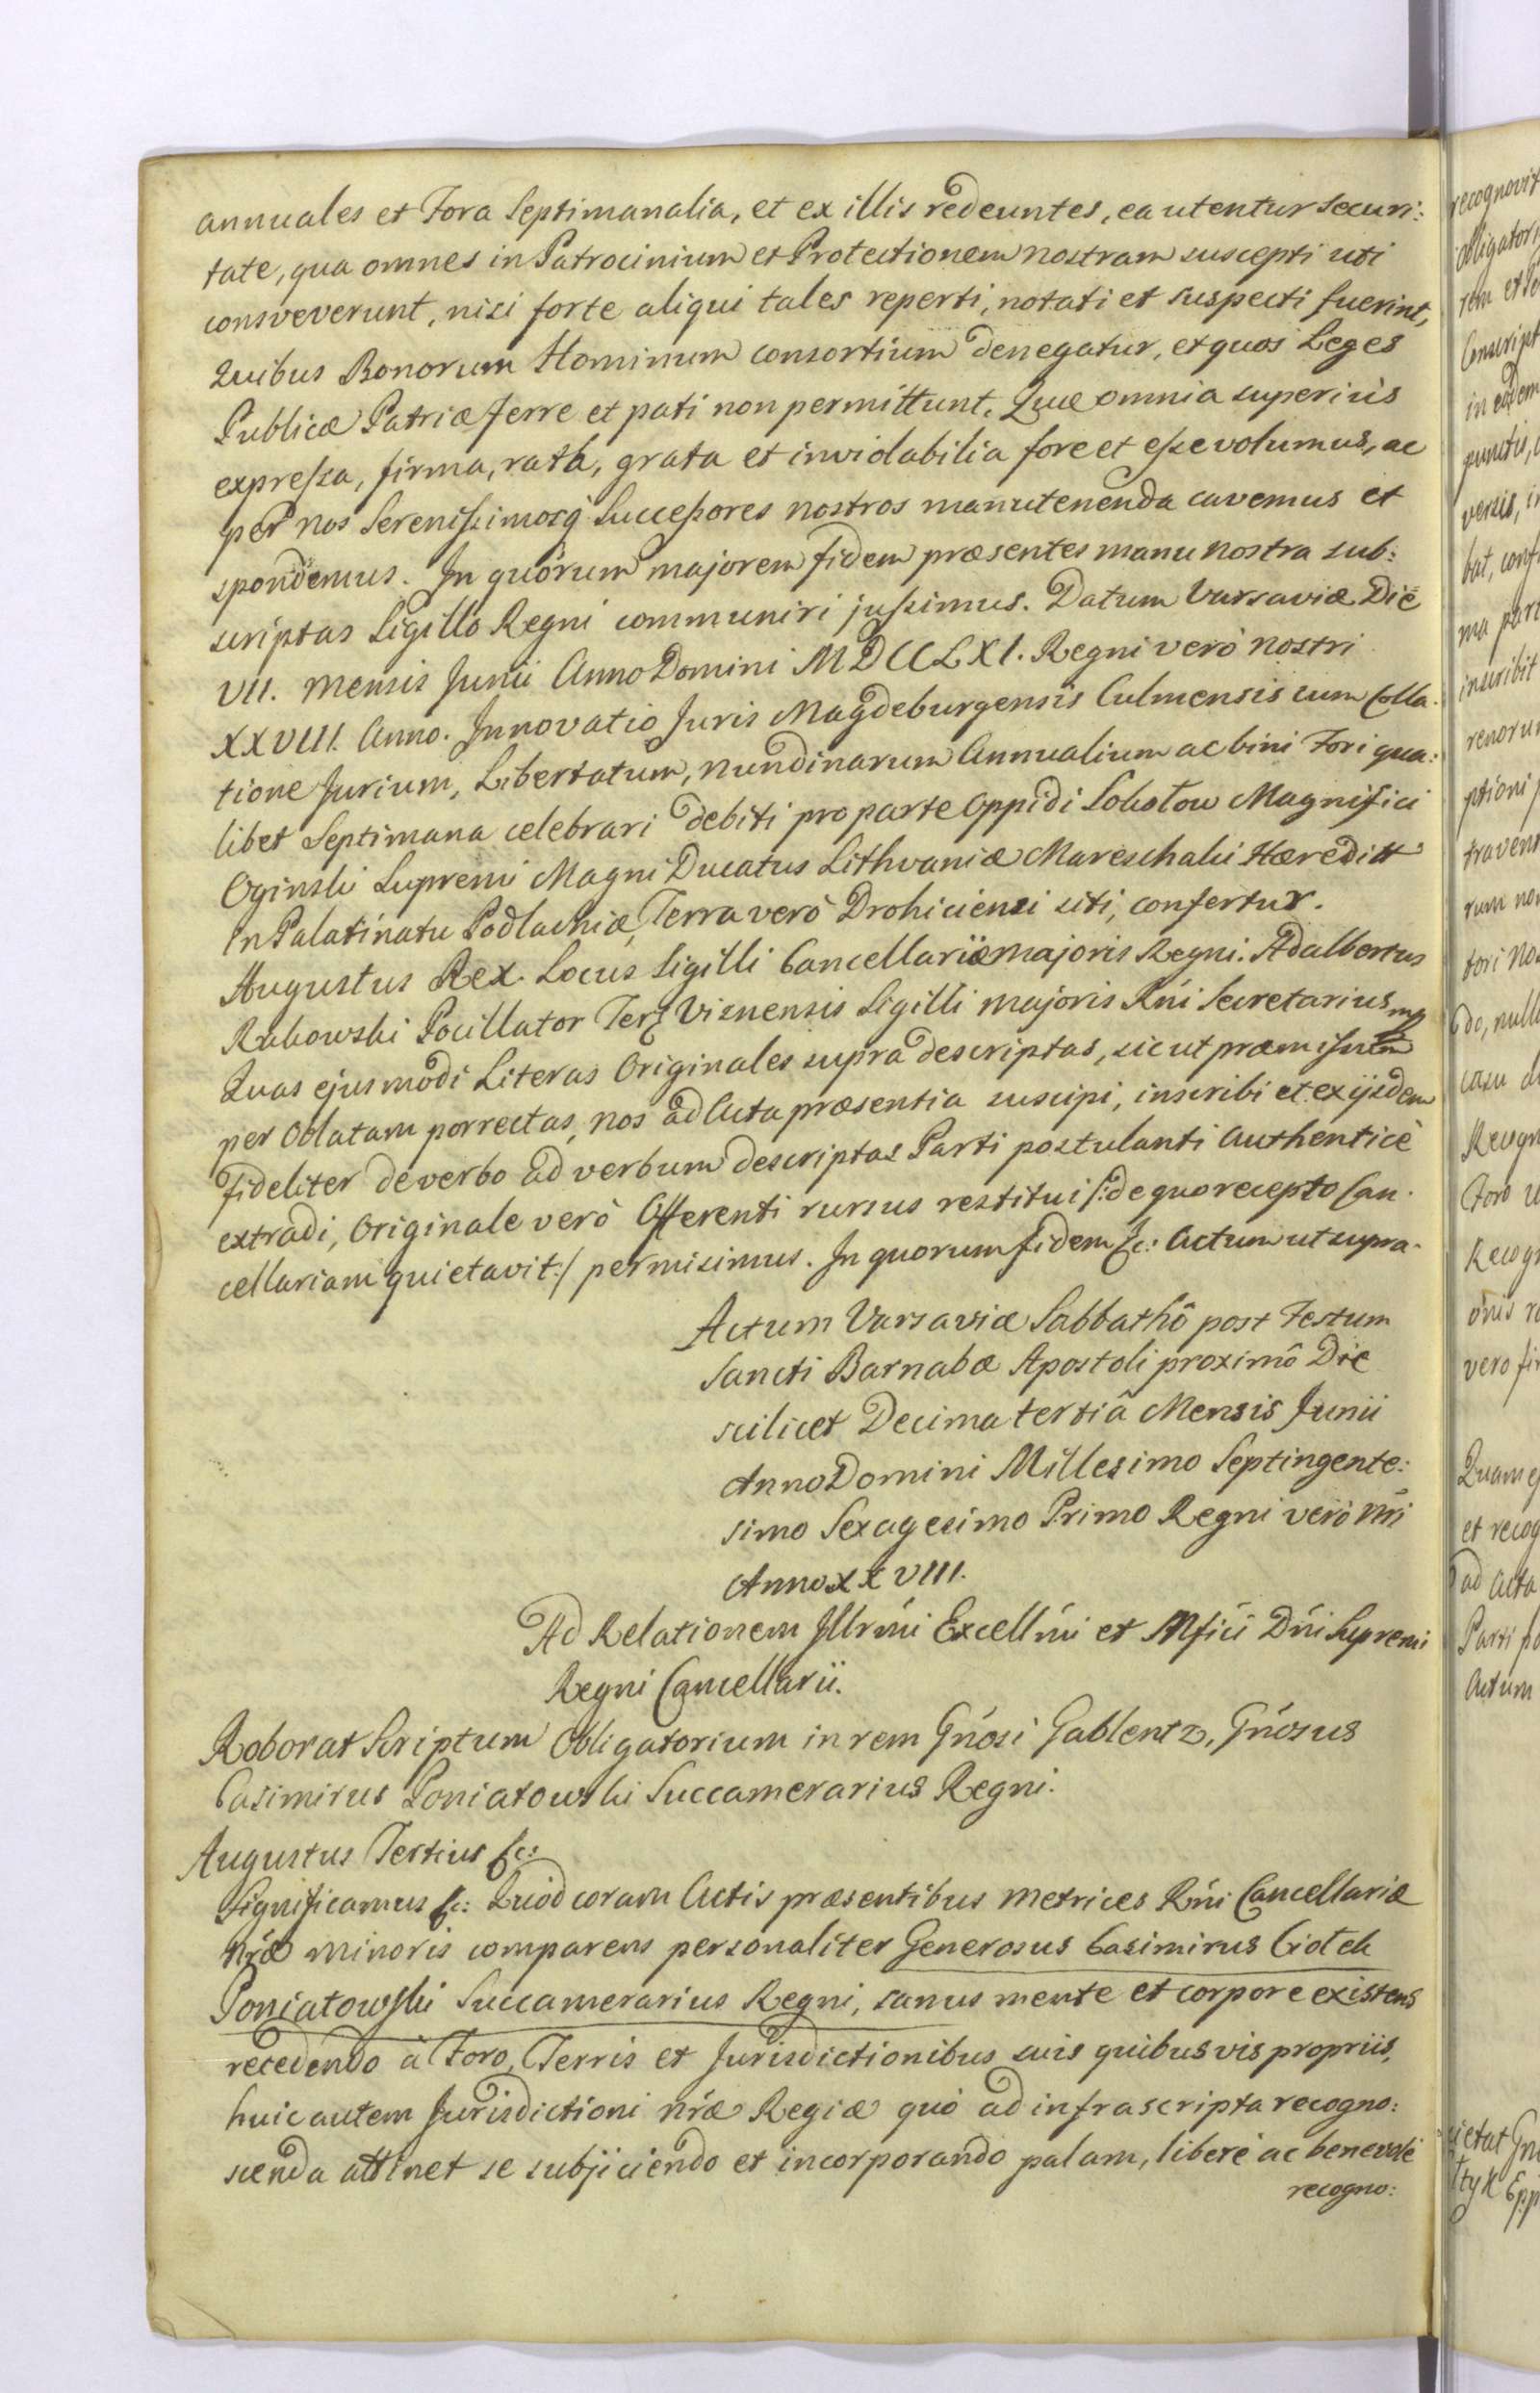 annuales et Fora Septimanalia, et ex illis redeuntes, ea utentur securi:
tate, qua omnes in Patrocinium et Protectionem nostram suscepti uti
consveverunt, nisi forte aliqui tales reperti, notati et suspecti fuerint,
Quibus Bonorum Hominum consortium denegatur, et quos Leges
Publicæ Patriæ ferre et pati non permittunt. Quæ omnia superiùs
expressa, firma, rata, grata et inviolabilia fore et esse volumus, ac
per nos Serenissimosq Successores nostros manutenenda cavemus et
spondemus. In quorum majorem fidem præsentes manu nostra sub:
scriptas Sigillo Regni communiri jussimus. Datum Varsaviæ Die
VII. mensis Junii Anno Domini MDCCLXI. Regni verò nostri
XXVIII. Anno. Innovatio Juris Magdeburgensis Culmensis cum Colla:
tione Jurium, Libertatum, nundinarum Annualium ac bini Fori qua:
libet Septimana celebrari debiti pro parte Oppidi Sokołow Magnifici
Oginski Supremi Magni Ducatus Lithvaniæ Mareschalci Hæreditt
In Palatinatu Podlachiæ, Terra verò Drohiciensi siti, confertur.
Augustus Rex. Locus Sigilli Cancellariæ majoris Regni. Adalbertus
Rakowski Pocillator Terę Visnensis Sigilli majoris Rńi Secretarius mp
Quas ejusmodi Literas Originales supra descriptas, sicut præmissum
per Oblatam porrectas, nos ad Acta præsentia suscipi, inscribi et ex ijsdem
fideliter de verbo ad verbum descriptas Parti postulanti Authenticè
extradi, Originale verò Offerenti rursus restitui /: de quo recepto Can:
cellariam quietavit :/ permisimus. In quorum fidem &c: Actum ut supra.
Actum Varsaviæ Sabbathô post Festum
Sancti Barnabæ Apostoli proximô Die
scilicet Decima tertiâ Mensis Junii
Anno Domini Millesimo Septingente:
simo Sexagesimo Primo Regni verò nrı
Anno XXVIII.
Ad Relationem Illrḿi Excellḿi et Mfici Dńi Supremi
Regni Cancellarii.
Roborat Scriptum Obligatorium in rem Gńosi Gablentz, Gńosus
Casimirus Poniatowski Succamerarius Regni.
Augustus Tertius &c:
Significamus &c: Quod coram Actis præsentibus metrices Rńi Cancellariæ
nræ minoris comparens personaliter Generosus Casimirus Ciołek
Poniatowski Succamerarius Regni, sanus mente et corpore existens
recedendo à Foro, Terris et Jurisdictionibus suis quibusvis propriis,
huic autem Jurisdictioni nræ Regiæ quò ad infrascripta recogno:
scenda attinet se subjiciendo et incorporando palam, liberè ac benevolè
recogno: